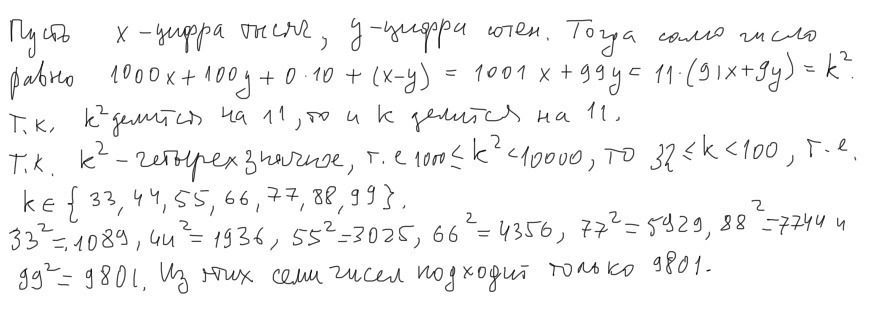 Пусть x - цифра тысяч, y - цифра сотен. Тогда само число
равно 1000x + 100y + 0·10 + (x-y) = 1001x + 99y = 11·(91x+9y) = k².
Т.к. k² делится на 11, то и k делится на 11.
Т.к. k² - четырехзначное, т.е 1000 ≤ k² < 10000, то 32 ≤ k < 100, т.е.
k ∈ { 33, 44, 55, 66, 77, 88, 99 }.
33² = 1089, 44² = 1936, 55² = 3025, 66² = 4356, 77² = 5929, 88² = 7744 и
99² = 9801. Из этих семи чисел подходит только 9801.